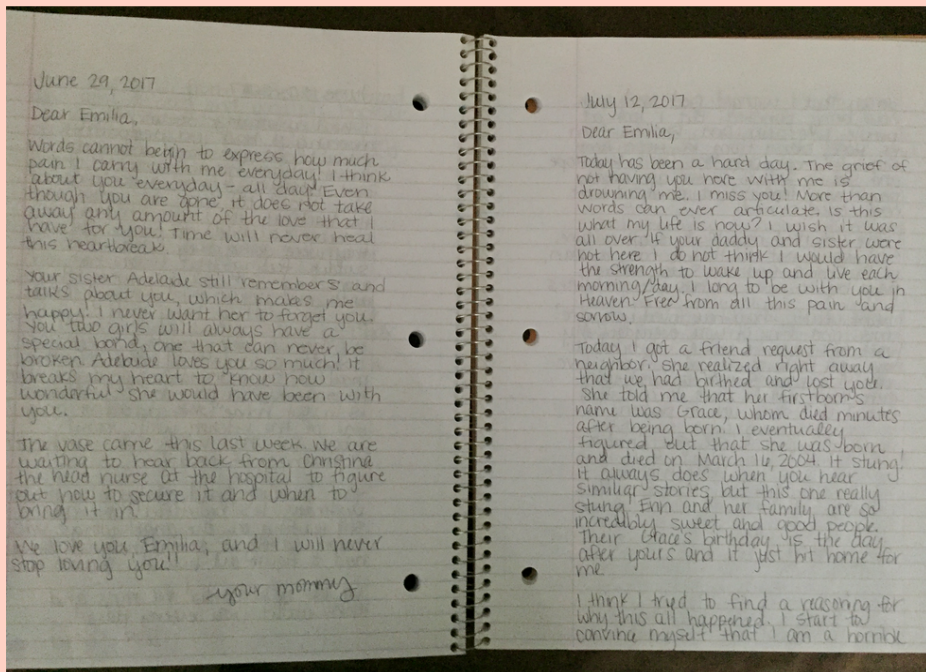 June 29, 2017
Dear Emilia,
Words cannot begin to express how much
pain I carry with me everyday! I think
about you everyday - all day! Even
though you are gone, it does not take
away any amount of the love that I
have for you! Time will never heal
this heartbreak.
Your sister Adelaide still remembers and
talks about you, which makes me
happy! I never want her to forget you.
You two girls will always have a
special bond, one that can never be
broken. Adelaide loves you so much! It
breaks my heart to know how
wonderful she would have been with
you.
The vase came this last week. We are
waiting to hear back from Christina
the head nurse at the hospital to figure
out how to secure it and when to
bring it in.
We love you, Emilia, and I will never
stop loving you!
your mommy
July 12, 2017
Dear Emilia,
Today has been a hard day. The grief of
not having you here with me is
drowning me. I miss you! More than
words can ever articulate. Is this
what my life is now? I wish it was
all over. If your daddy and sister were
not here I do not think I would have
the strength to wake up and live each
morning/day. I long to be with you in
Heaven. Free from all this pain and
sorrow.
Today I got a friend request from a
neighbor. She realized right away
that we had birthed and lost you.
She told me that her firstborn's
name was Grace, whom died minutes
after being born. I eventually
figured out that she was born
and died on March 16, 2004. It stung!
It always does when you hear
similiar stories, but this one really
stung. Erin and her family are so
incredibly sweet and good people.
Their Grace's birthday is the day
after yours and it just hit home for
me.
I think I tried to find a reasoning for
why this all happened. I start to
convince myself that I am a horrible